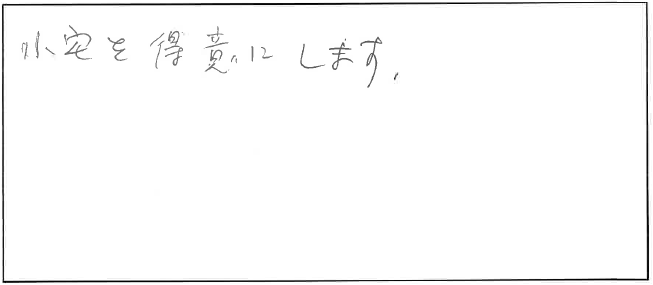 小宅を得意にします.